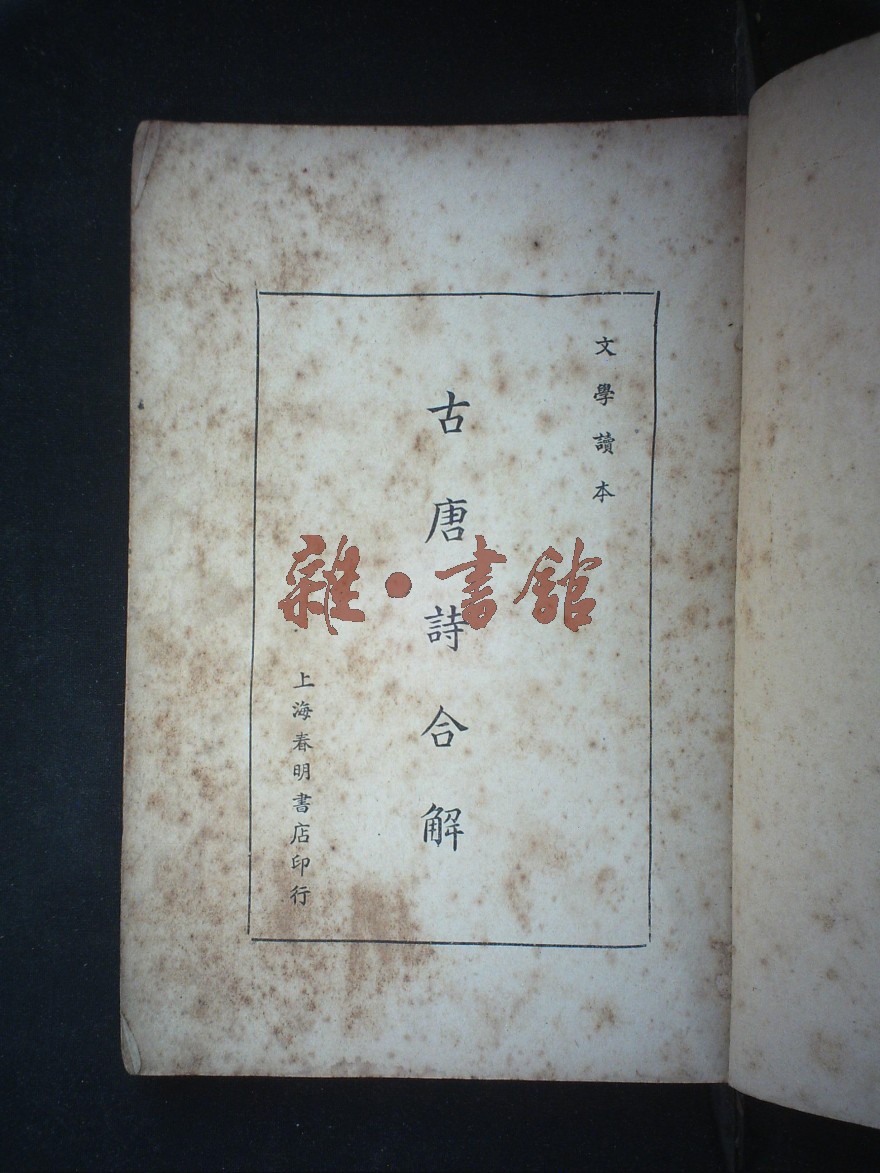 文學讀本
古唐詩合解
上海春明書店印行
雜·書館